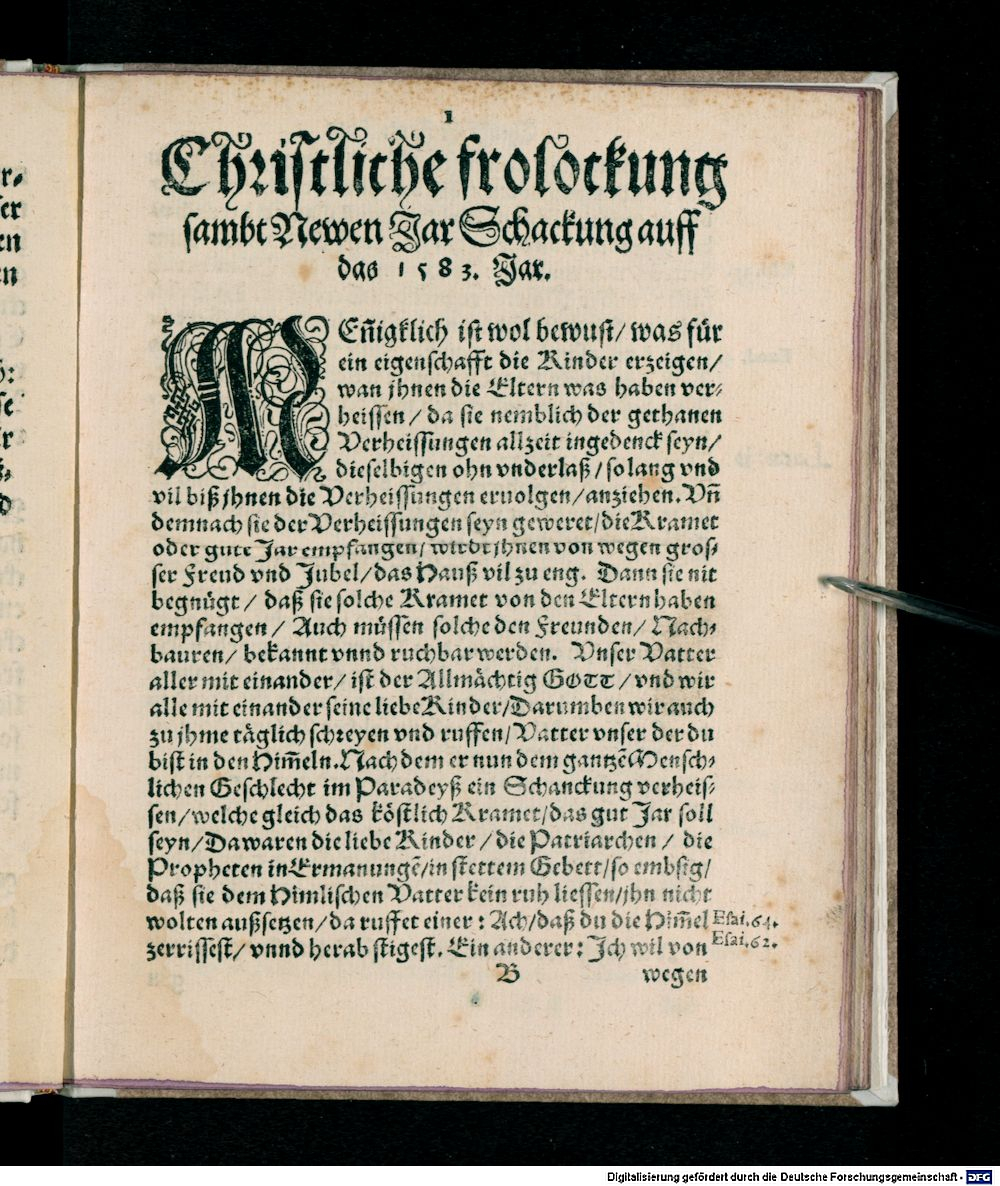 1
Christliche frolockung
sambt Newen Jar Schackung auff
das 1583. Jar.
MEñigklich ist wol bewust/ was für
ein eigenschafft die Kinder erzeigen/
wan jhnen die Eltern was haben ver-
heissen/ da sie nemblich der gethanen
Verheissungen allzeit ingedenck seyn/
dieselbigen ohn vnderlaß/ so lang vnd
vil biß jhnen die Verheissungen eruolgen/ anziehen. Vñ
demnach sie der Verheissungen seyn geweret/ die Kramet
oder gute Jar empfangen/ wirdt jhnen von wegen gros-
ser Freud vnd Jubel/ das Hauß vil zu eng. Dann sie nit
begnügt/ daß sie solche Kramet von den Eltern haben
empfangen/ Auch müssen solche den Freunden/ Nach-
bauren/ bekannt vnnd ruchbar werden. Vnser Vatter
aller mit einander/ ist der Allmächtig GOTT/ vnd wir
alle mit einander seine liebe Kinder/ Darumben wir auch
zu jhme täglich schreyen vnd ruffen/ Vatter vnser der du
bist in den Him̃eln. Nach dem er nun dem gantzẽ Mensch-
lichen Geschlecht im Paradeyß ein Schanckung verheis-
sen/ welche gleich das köstlich Kramet/ das gut Jar soll
seyn/ Da waren die liebe Kinder/ die Patriarchen/ die
Propheten in Ermanungẽ/ in stettem Gebett/ so embsig/
daß sie dem Himlischen Vatter kein ruh liessen/ jhn nicht
wolten außsetzen/ da ruffet einer: Ach/ daß du die Him̃el
zerrissest/ vnnd herab stigest. Ein anderer: Ich wil von
Esai. 64.
Esai. 62.
B wegen
r-
ser
en
en
h:
se
ir
d
Digitalisierung gefördert durch die Deutsche Forschungsgemeinschaft - DFG